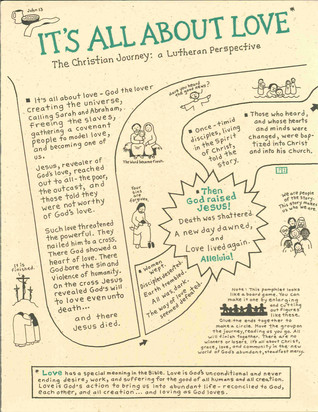 John 13
IT'S ALL ABOUT LOVE*
The Christian Journey: a Lutheran Perspective
It's all about love - God the lover
creating the universe,
calling Sarah and Abraham,
freeing the slaves,
gathering a covenant
people to model love,
and becoming one of
us.
Jesus, revealer of
God's love, reached
out to all - the poor,
the outcast, and
those told they
were not worthy
of God's love.
Such love threatened
the powerful. They
nailed him to a cross.
There God showed a
heart of love. There
God bore the sin and
violence of humanity.
On the cross Jesus
revealed God's will
to love even unto
death...
and there
Jesus died.
It is
finished.
The Word became flesh.
Your
sins are
forgiven.
Women
wept.
Disciples deserted.
Earth trembled.
All was dark.
The way of love
seemed defeated.
Then
God raised
Jesus!
Death was shattered
A new day dawned,
and
Love lived again.
Alleluia!
Once-timid
disciples, living
in the Spirit
of Christ,
told the
story.
Those who heard,
and whose hearts
and minds were
changed, were bap-
tized into Christ
and into his church.
We are people
of the story.
The story makes
us who we are.
Note: This pamphlet looks
like a board game. You can
make it one by enlarging
and cutting
out figures
like these.
Glue the ends together to
make a circle. Move the group on
the journey, reading as you go. All
will finish together. There are no
winners or losers. It's all about Christ,
grace, love, and community in the new
world of God's abundant, steadfast mercy.
* Love has a special meaning in the Bible. Love is God's unconditional and never
ending desire, work, and suffering for the good of all humans and all creation.
Love is God's action to bring us into abundant life - reconciled to God,
each other, and all creation... and loving as God loves.